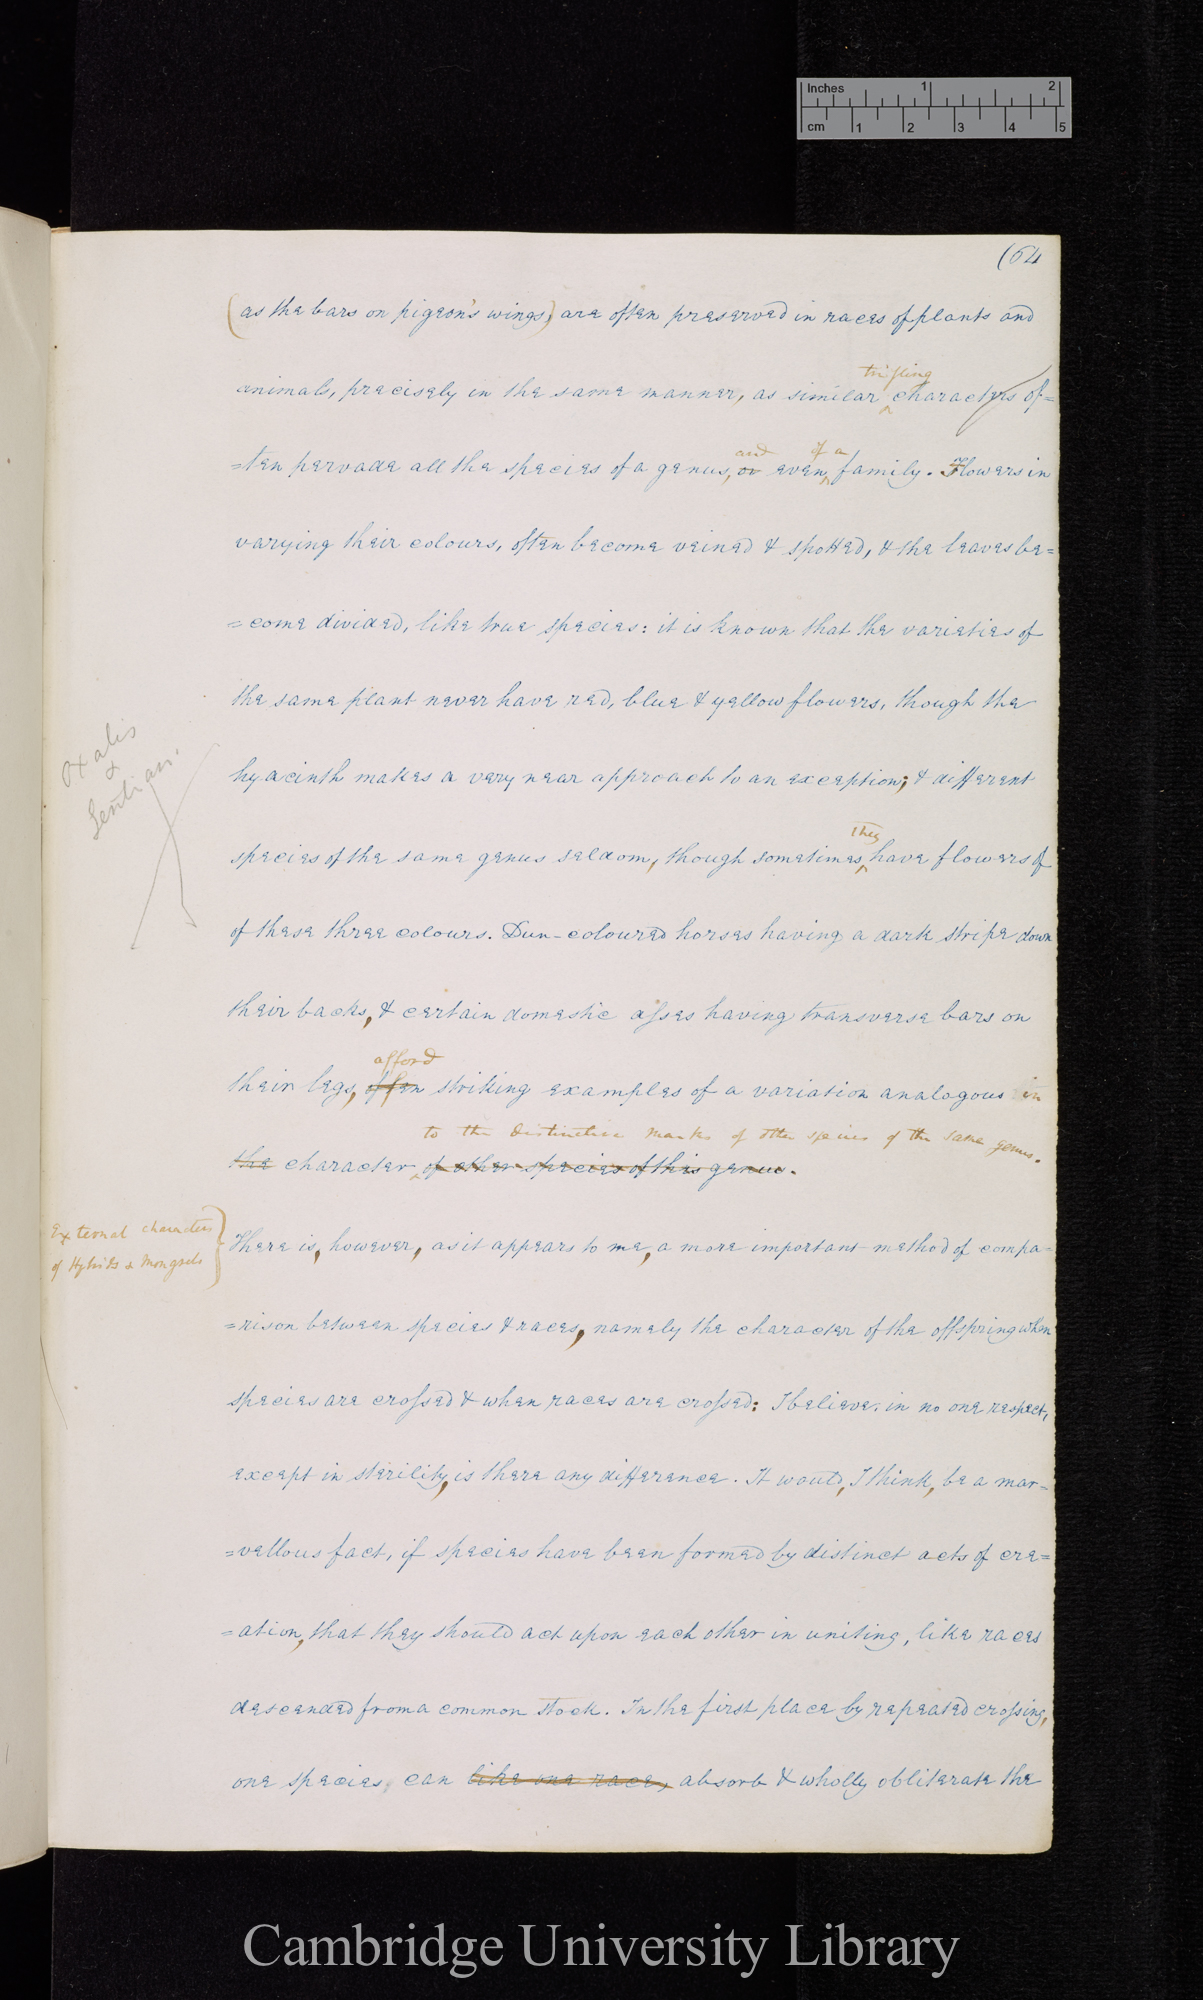 Inches 1 2
cm 1 2 3 4 5
(64
(as the bars on pigeon's wings) are often preserved in races of plants and
trifling
animals, precisely in the same manner, as similar characters of=
and of a
=ten pervade all the species of a genus, or even family. Flowers in
varying their colours, often become veined & spotted, & the leaves be=
=come divided, like true species: it is known that the varieties of
the same plant never have red, blue & yellow flowers, though the
Oxalis
&
Gentian.
hyacinth makes a very near approach to an exception; & different
they
species of the same genus seldom, though sometimes have flowers of
of these three colours. Dun-coloured horses having a dark stripe down
their backs, & certain domestic asses having transverse bars on
afford
their legs, often striking examples of a variation analogous in
to the distinctive marks of other species of the same genus.
the character of other species of this genus.
External characters
of Hybrids & Mongrels
There is, however, as it appears to me, a more important method of compa=
=rison between species & races, namely the character of the offspring when
species are crossed & when races are crossed: I believe, in no one respect,
except in sterility, is there any difference. It would, I think, be a mar=
=vellous fact, if species have been formed by distinct acts of cre=
=ation, that they should act upon each other in uniting, like races
descended from a common stock. In the first place by repeated crossing,
one species, can like one race, absorb & wholly obliterate the
Cambridge University Library